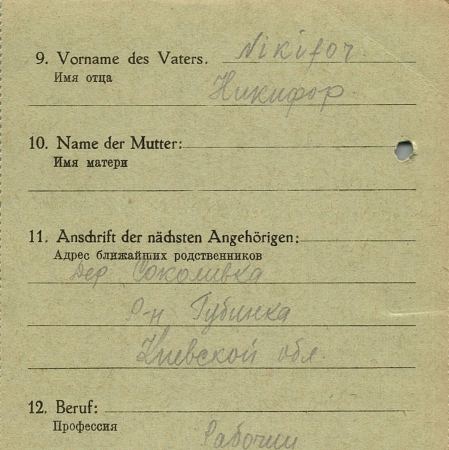 9. Vorname des Vaters. Nikifor.
Имя отца
Никифор.
10. Name der Mutter:
Имя матери
11. Anschrift der nächsten Angehörigen:
Адрес ближайших родственников
Дер Соколивка
р-н Губинка
Киевской обл.
12. Beruf:
Профессия
Рабочий